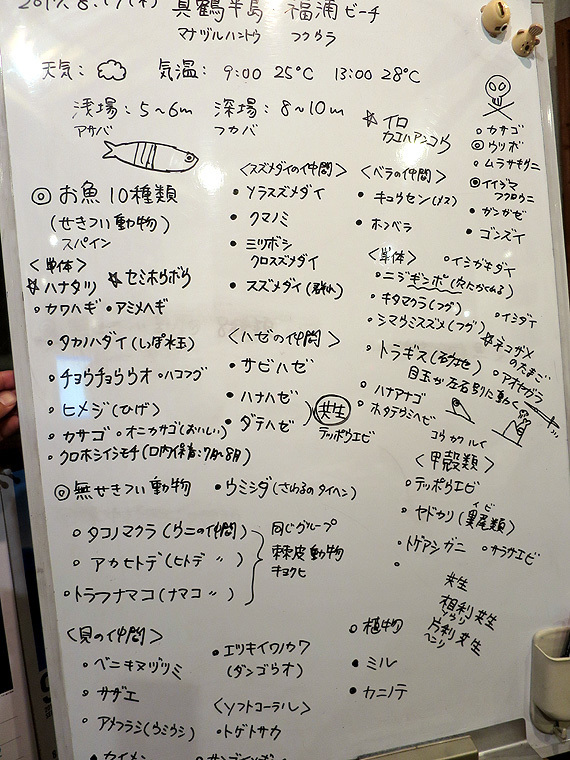 真鶴半島 福浦ビーチ
マナヅルハントウ フクウラ
天気: 気温: 9:00 25℃ 13:00 28℃
浅場: 5~6m 深場: 8~10m
アサバ フカバ
☆イロ
カエルアンコウ
◎お魚10種類
(せきつい動物)
スパイン
<単体>
☆ハナタツ ☆セミホウボウ
・カワハギ ・アミメハギ
・タカノハダイ(しっぽ水玉)
・チョウチョウウオ ・ハコフグ
・ヒメジ(ひげ)
・カサゴ ・オニカサゴ(おいしい)
・クロホシイシモチ(口内保育:7月~8月)
<スズメダイの仲間>
・ソラスズメダイ
・クマノミ
・ミツボシ
クロスズメダイ
・スズメダイ(群れ)
<ハゼの仲間>
・サビハゼ
・ハナハゼ
・ダテハゼ
共生
テッポウエビ
<ベラの仲間>
・キュウセン(メス)
・ホンベラ
<単体> ・イシガキダイ
・ニジギンポ
・キタマクラ(フグ) ・イシダイ
・シマウミスズメ(フグ)
☆ネコザメ
のたまご
・トラギス
目玉が左右別々に動く
・アオヤガラ
・ハナアナゴ
・ホタテウミヘビ
・カサゴ
◎ウツボ
・ムラサキウニ
◎イイジマ
フクロウニ
・ガンガゼ
・ゴンズイ
コウカクルイ
<甲殻類>
・テッポウエビ
・ヤドカリ(異尾類)
イビ
・トゲアシガニ ・サラサエビ
共生
相利共生
ソウリ
片利共生
ヘンリ
◎無せきつい動物 ・ウミシダ(さわるのタイヘン)
・タコノマクラ(ウニの仲間)
・アカヒトデ(ヒトデ 〃)
・トラフナマコ(ナマコ 〃)
同じグループ
棘皮動物
キョクヒ
<貝の仲間>
・ベニキヌヅツミ
・サザエ
・アメフラシ(ウミウシ)
・カイメン
・エツキイワノカワ
(ダンゴウオ)
<ソフトコーラル>
・トゲトサカ
・植物
・ミル
・カニノテ